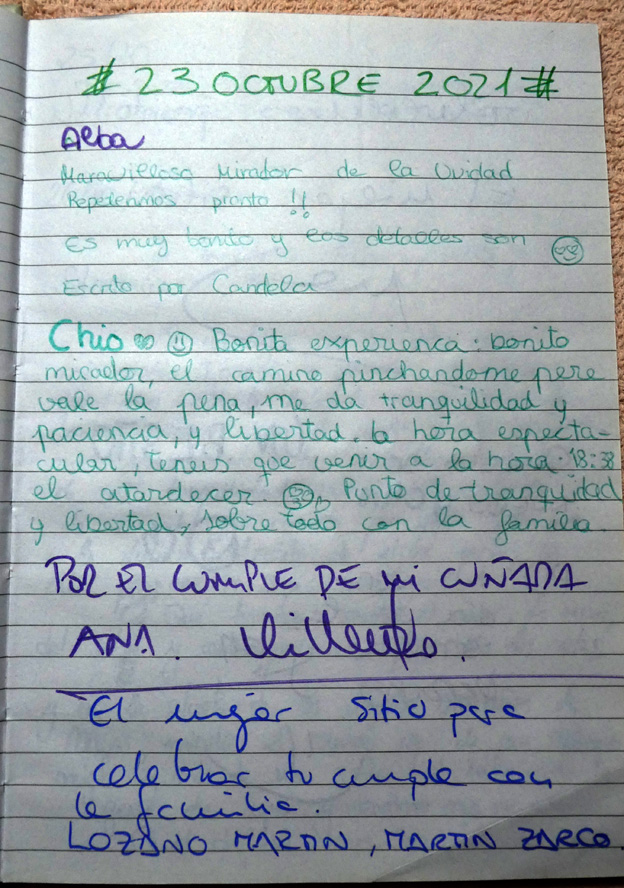 # 23 OCTUBRE 2021 #
Alba
Maravilloso Mirador de la Unidad
Repetiremos pronto !!
Es muy bonito y los detalles son
Escrito por Candela
Chio Bonita experiencia: bonito
mirador, el camino pinchandome pero
vale la pena, me da tranquilidad y
paciencia, y libertad. la hora especta-
cular, teneis que venir a la hora 18:38
el atardecer. Punto de tranquidad
y libertad, sobre todo con la familia.
POR EL CUMPLE DE mi CUÑADA
ANA.
El mejor sitio para
celebrar tu cumple con
la familia.
LOZANO MARTIN, MARTIN ZARCO.